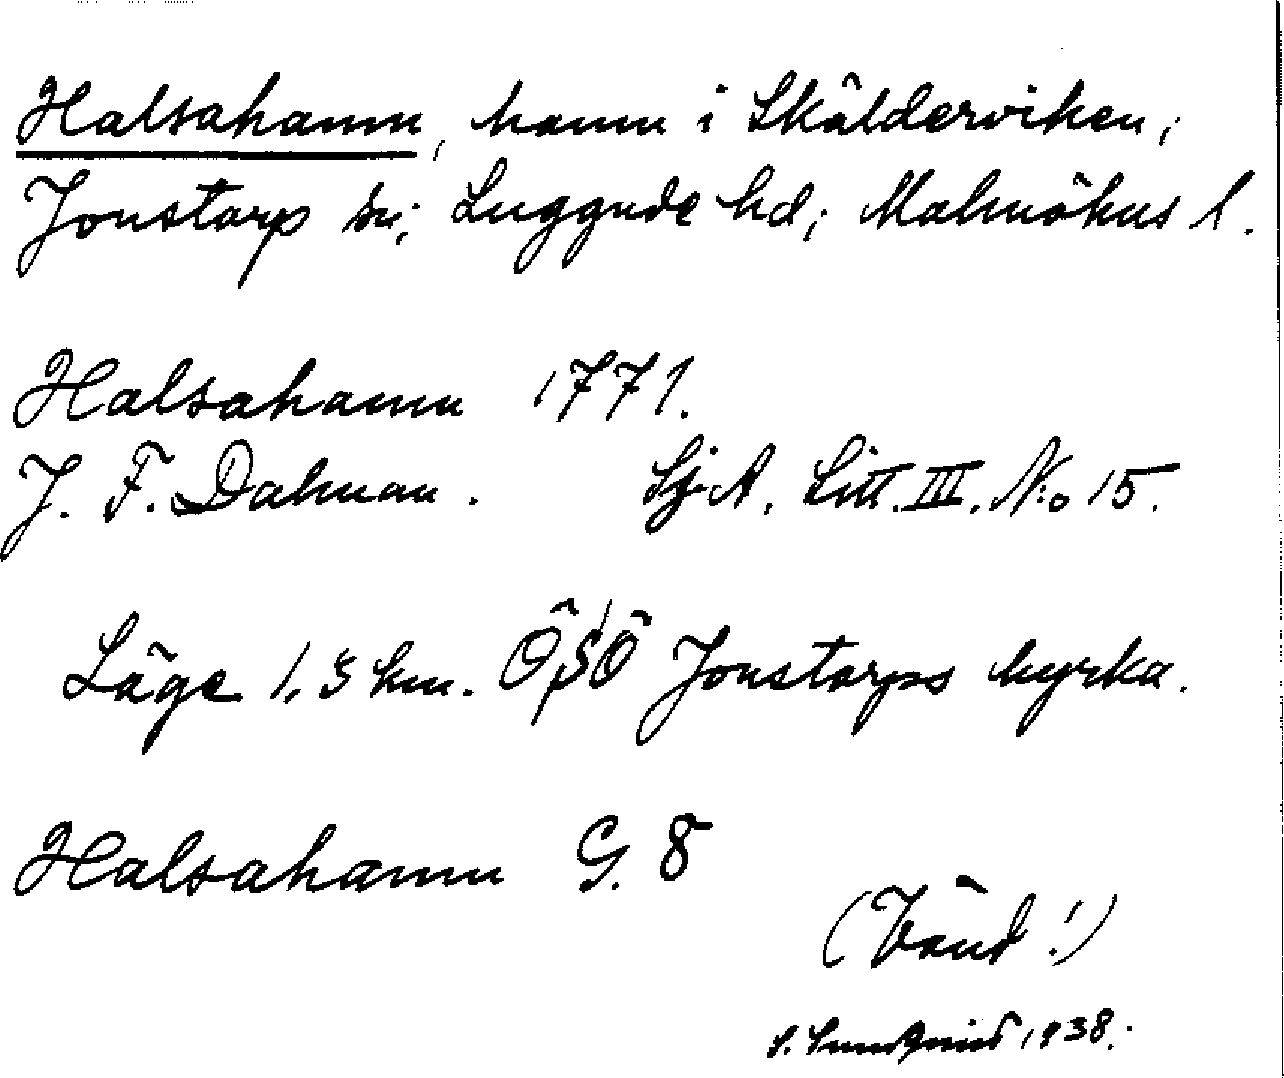 Halsahamn, hamn i Skälderviken,
Jonstorp sn; Luggude hd; Malmöhus l.
Halsahamn 1771.
J. F. Dalman. Sj.A. Litt. III. No 15.
Läge 1,3 km. ÖSÖ Jonstorps kyrka.
Halsahamn G. 8
(Vänd!)
S. 1938.